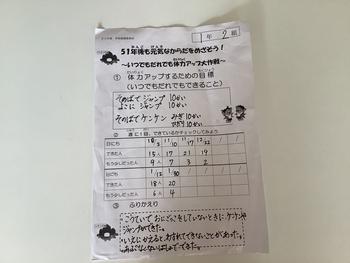 1年 2組
51年後も元気なからだをめざそう！
～いつでもだれでも体力アップ大作戦～
① 体力アップするための目標
（いつでもだれでもできること）
そのばでジャンプ 10かい
よこにジャンプ 10かい
そのばでケンケン みぎ10かい
ひだり10かい
② 週に1回、できているかチェックしてみよう
日にち 10/3 11/10 11/17 12/22
できた人 15人 17 21 19
もう少しだった人 9人 7 3 2
日にち 1/12 1/30
できた人 18人 20
もう少しだった人 6人 4
③ ふりかえり
こうていで おにごっこをしないときに ケンケンや
ジャンプができた。
いえにかえると、わすれてできないことがあった。
あぶなくないばしょでできた。